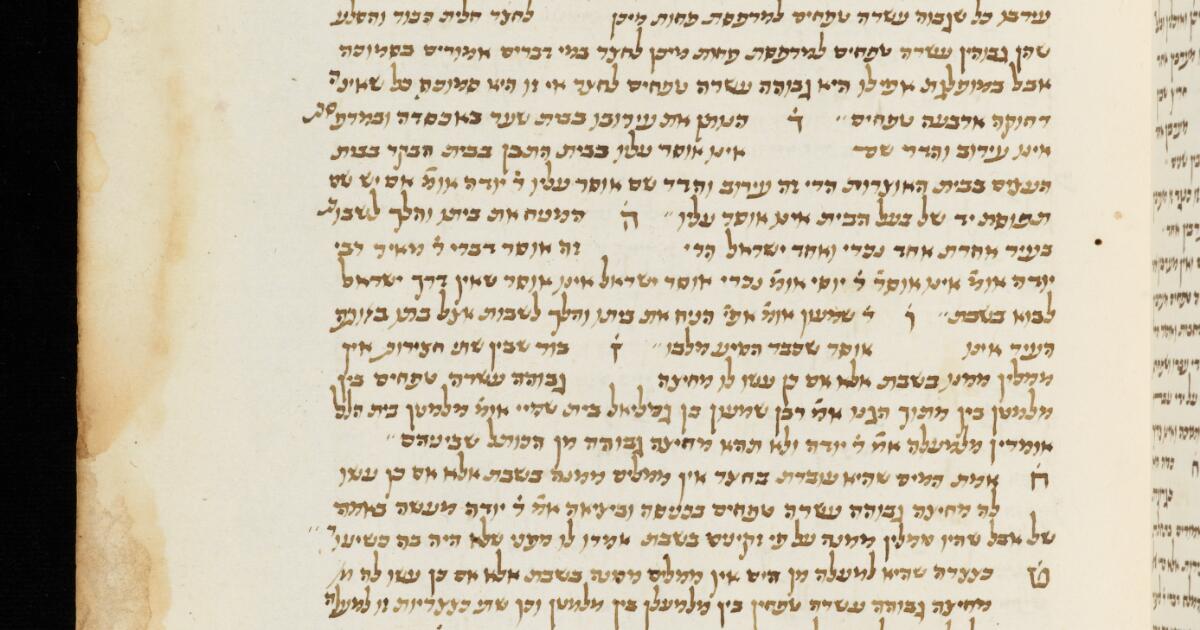 עירבו כל שגבוה עשרה טפחים למרפסת פחות מיכן לחצר חלית הבור והסלע
שהן גבוהין עשרה טפחים למרפסת פחות מיכן לחצר במי דברים אמורים בסמוכה
אבל במופלגת אפילו היא גבוהה עשרה טפחים לחצר אי זו היא סמוכה כל שאינה
רחוקה ארבעה טפחים ד הנותן את עירובו בבית שער באכסדרה ובמרפסת
אינו עירוב והדר שם אינו אוסר עליו בבית התבן בבית הבקר בבית
העצים בבית האוצרות הרי זה עירוב והדר שם אוסר עליו ר׳ יודה אומ׳ אם יש שם
תפוסת יד של בעל הבית אינו אוסר עליו ה המניח את ביתו והלך לשבות
בעיר אחרת אחד נכרי ואחד ישראל הרי זה אוסר דברי ר׳ מאיר רבי
יודה אומ׳ אינו אוסר ר׳ יוסי אומ׳ נכרי אוסר ישראל אינו אוסר שאין דרך ישראל
לבוא בשבת ו ר׳ שמעון אומ׳ אפי׳ הניח את ביתו והלך לשבות אצל בתו באותה
העיר אינו אוסר שכבר הסיע מלבו ז בור שבין שתי חצירות אין
ממלין ממנו בשבת אלא אם כן עשו לו מחיצה גבוהה עשרה טפחים בין
מלמטן בין מתוך הגנו אמ׳ רבן שמעון בן גמליאל בית שמיי אומ׳ מלמטן בית הלל
אומרין מלמעלה אמ׳ ר׳ יודה ולא תהא מחיצה גבוהה מן הכותל שביניהם
ח אמת המים שהיא עוברת בחצר אין ממלים ממנה בשבת אלא אם כן עשו
לה מחיצה גבוהה עשרה טפחים בכניסה וביציאה אמ׳ ר׳ יודה מעשה באמה
של אבל שהיו ממלין ממנה על פי זקינים בשבת אמרו לו מפני שלא היה בה כשיעור
ט כצצרה שהיא למעלה מן הים אין ממלים ממנה בשבת אלא אם כן עשו לה
מחיצה גבוהה עשרה טפחין בין מלמעלן בין מלמטן וכן שתי כצצריות זו למעלה